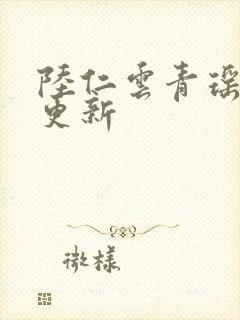 陸仁雲青瑶
更新
微樣